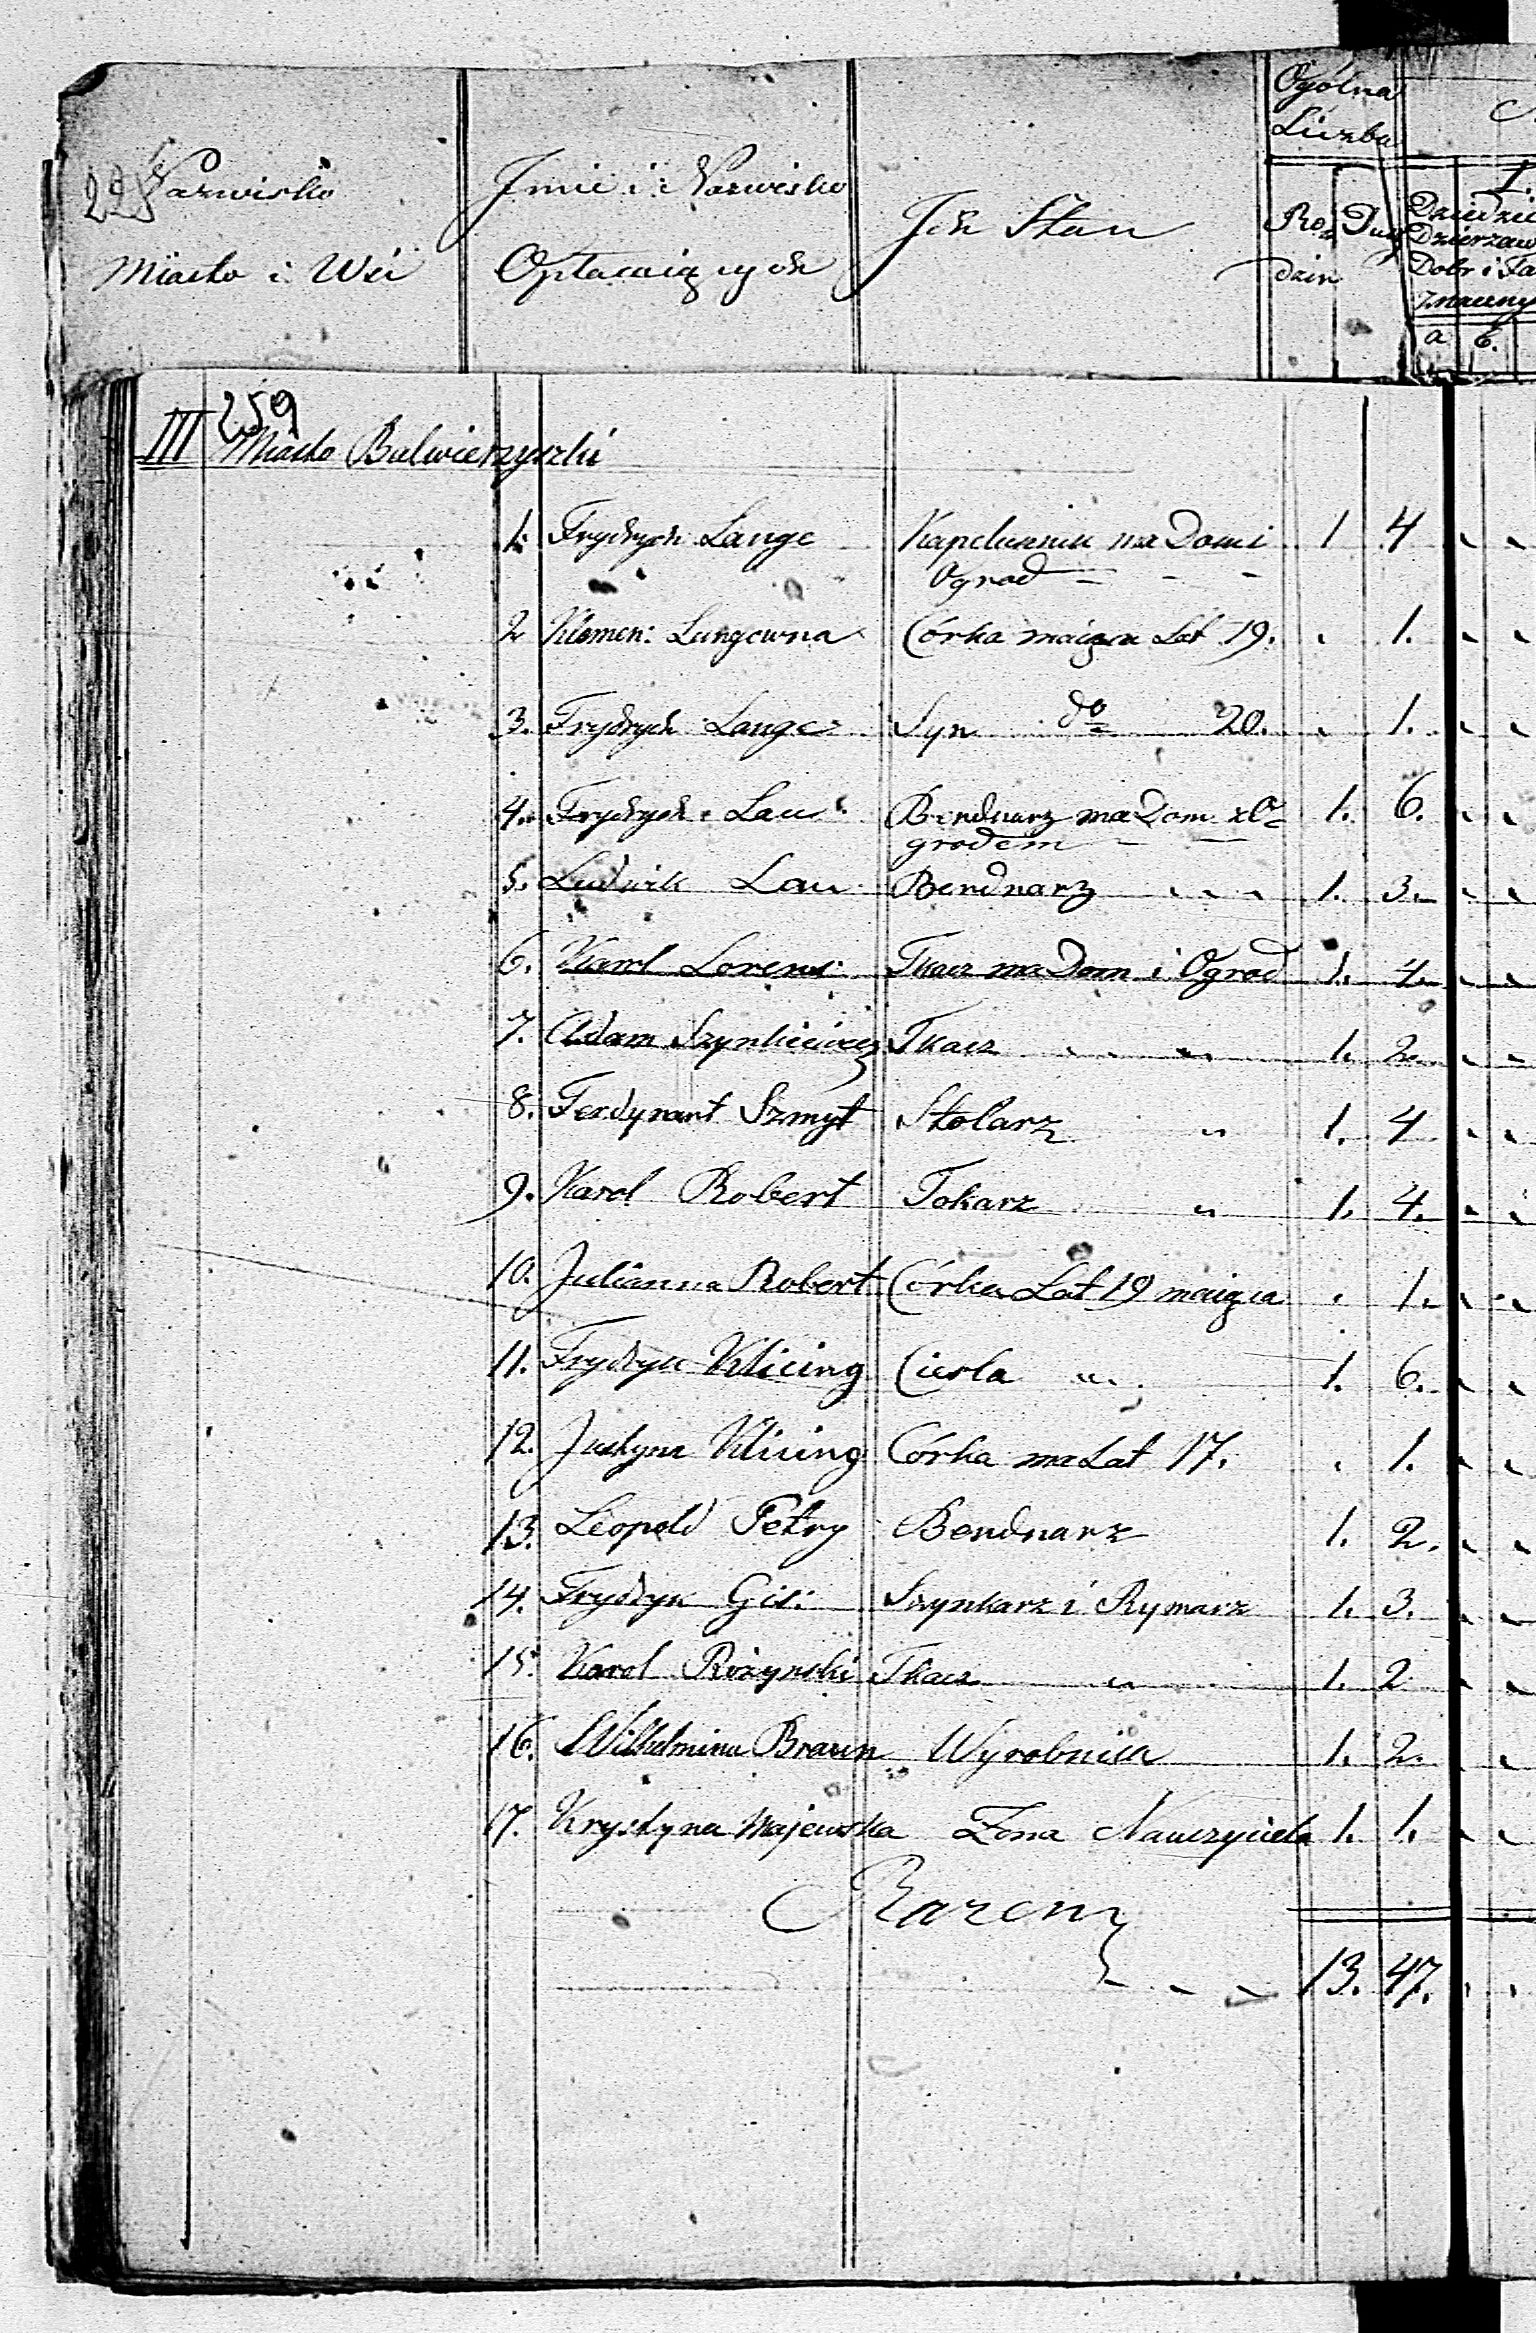 Ogólna
Liczba
Nazwisko
Miasto i Wsi
Jmie i Nazwisko
Opłacaiących
Jch Stan
Ro
dzin
Dusz
I.
Dobr i
a b.
259
III Miasto Balwierzyszki
1. Frydrych Lange Kapeluznik ma Dom i 1 4
Ogrod
2 Klemen: Langowna Córka maiąca Lat 19. 1.
3. Frydrych Lange Syn do 20. 1.
4. Frydrych Lau Bendnarz ma Dom z O= 1. 6.
grodem
5. Ludwik Lau Bendnarz 1. 3.
6. Karol Lorenc Tkacz ma Dom i Ogrod 1. 4.
7. Adam Szynkiewicz Tkacz 1. 2.
8. Ferdynant Szmyt Stolarz 1. 4
9. Karol Robert Tokarz 1. 4.
10. Julianna Robert Córka Lat 19 maiąca 1.
11. Frydryk Klicing Ciesla 1. 6.
12. Justyna Klicing Córka ma Lat 17. 1.
13. Leopold Petry Bendnarz 1. 2.
14. Frydryk Gis: Szynkarz i Rymarz 1. 3.
15. Karol Rożynski Tkacz 1. 2
16. Wilhelmina Braun Wyrobnica 1. 2.
17. Krystyna Majewska Zona Nauczyciela 1. 1.
Razem
13. 47.